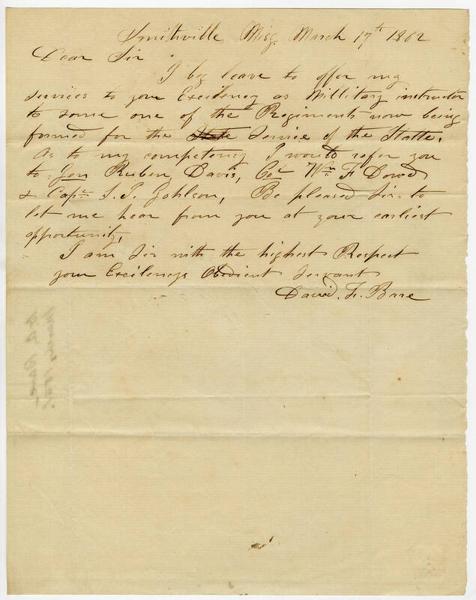 Smithville Miss, March 17th 1862
Dear Sir
I beg leave to offer my
services to your Excelency as Millitary instructor
to some one of the Regiments now being
formed for the State Service of the Statte,
As to my competency I would refer you
to Gen Reuben Davis, Col Wm F Dowd
& Capt J. T. Be pleased Sir to
let me hear from you at your earliest
opportunity,
I am Sir with the highest Respect
your Excilency Obedient Servant
David. F.